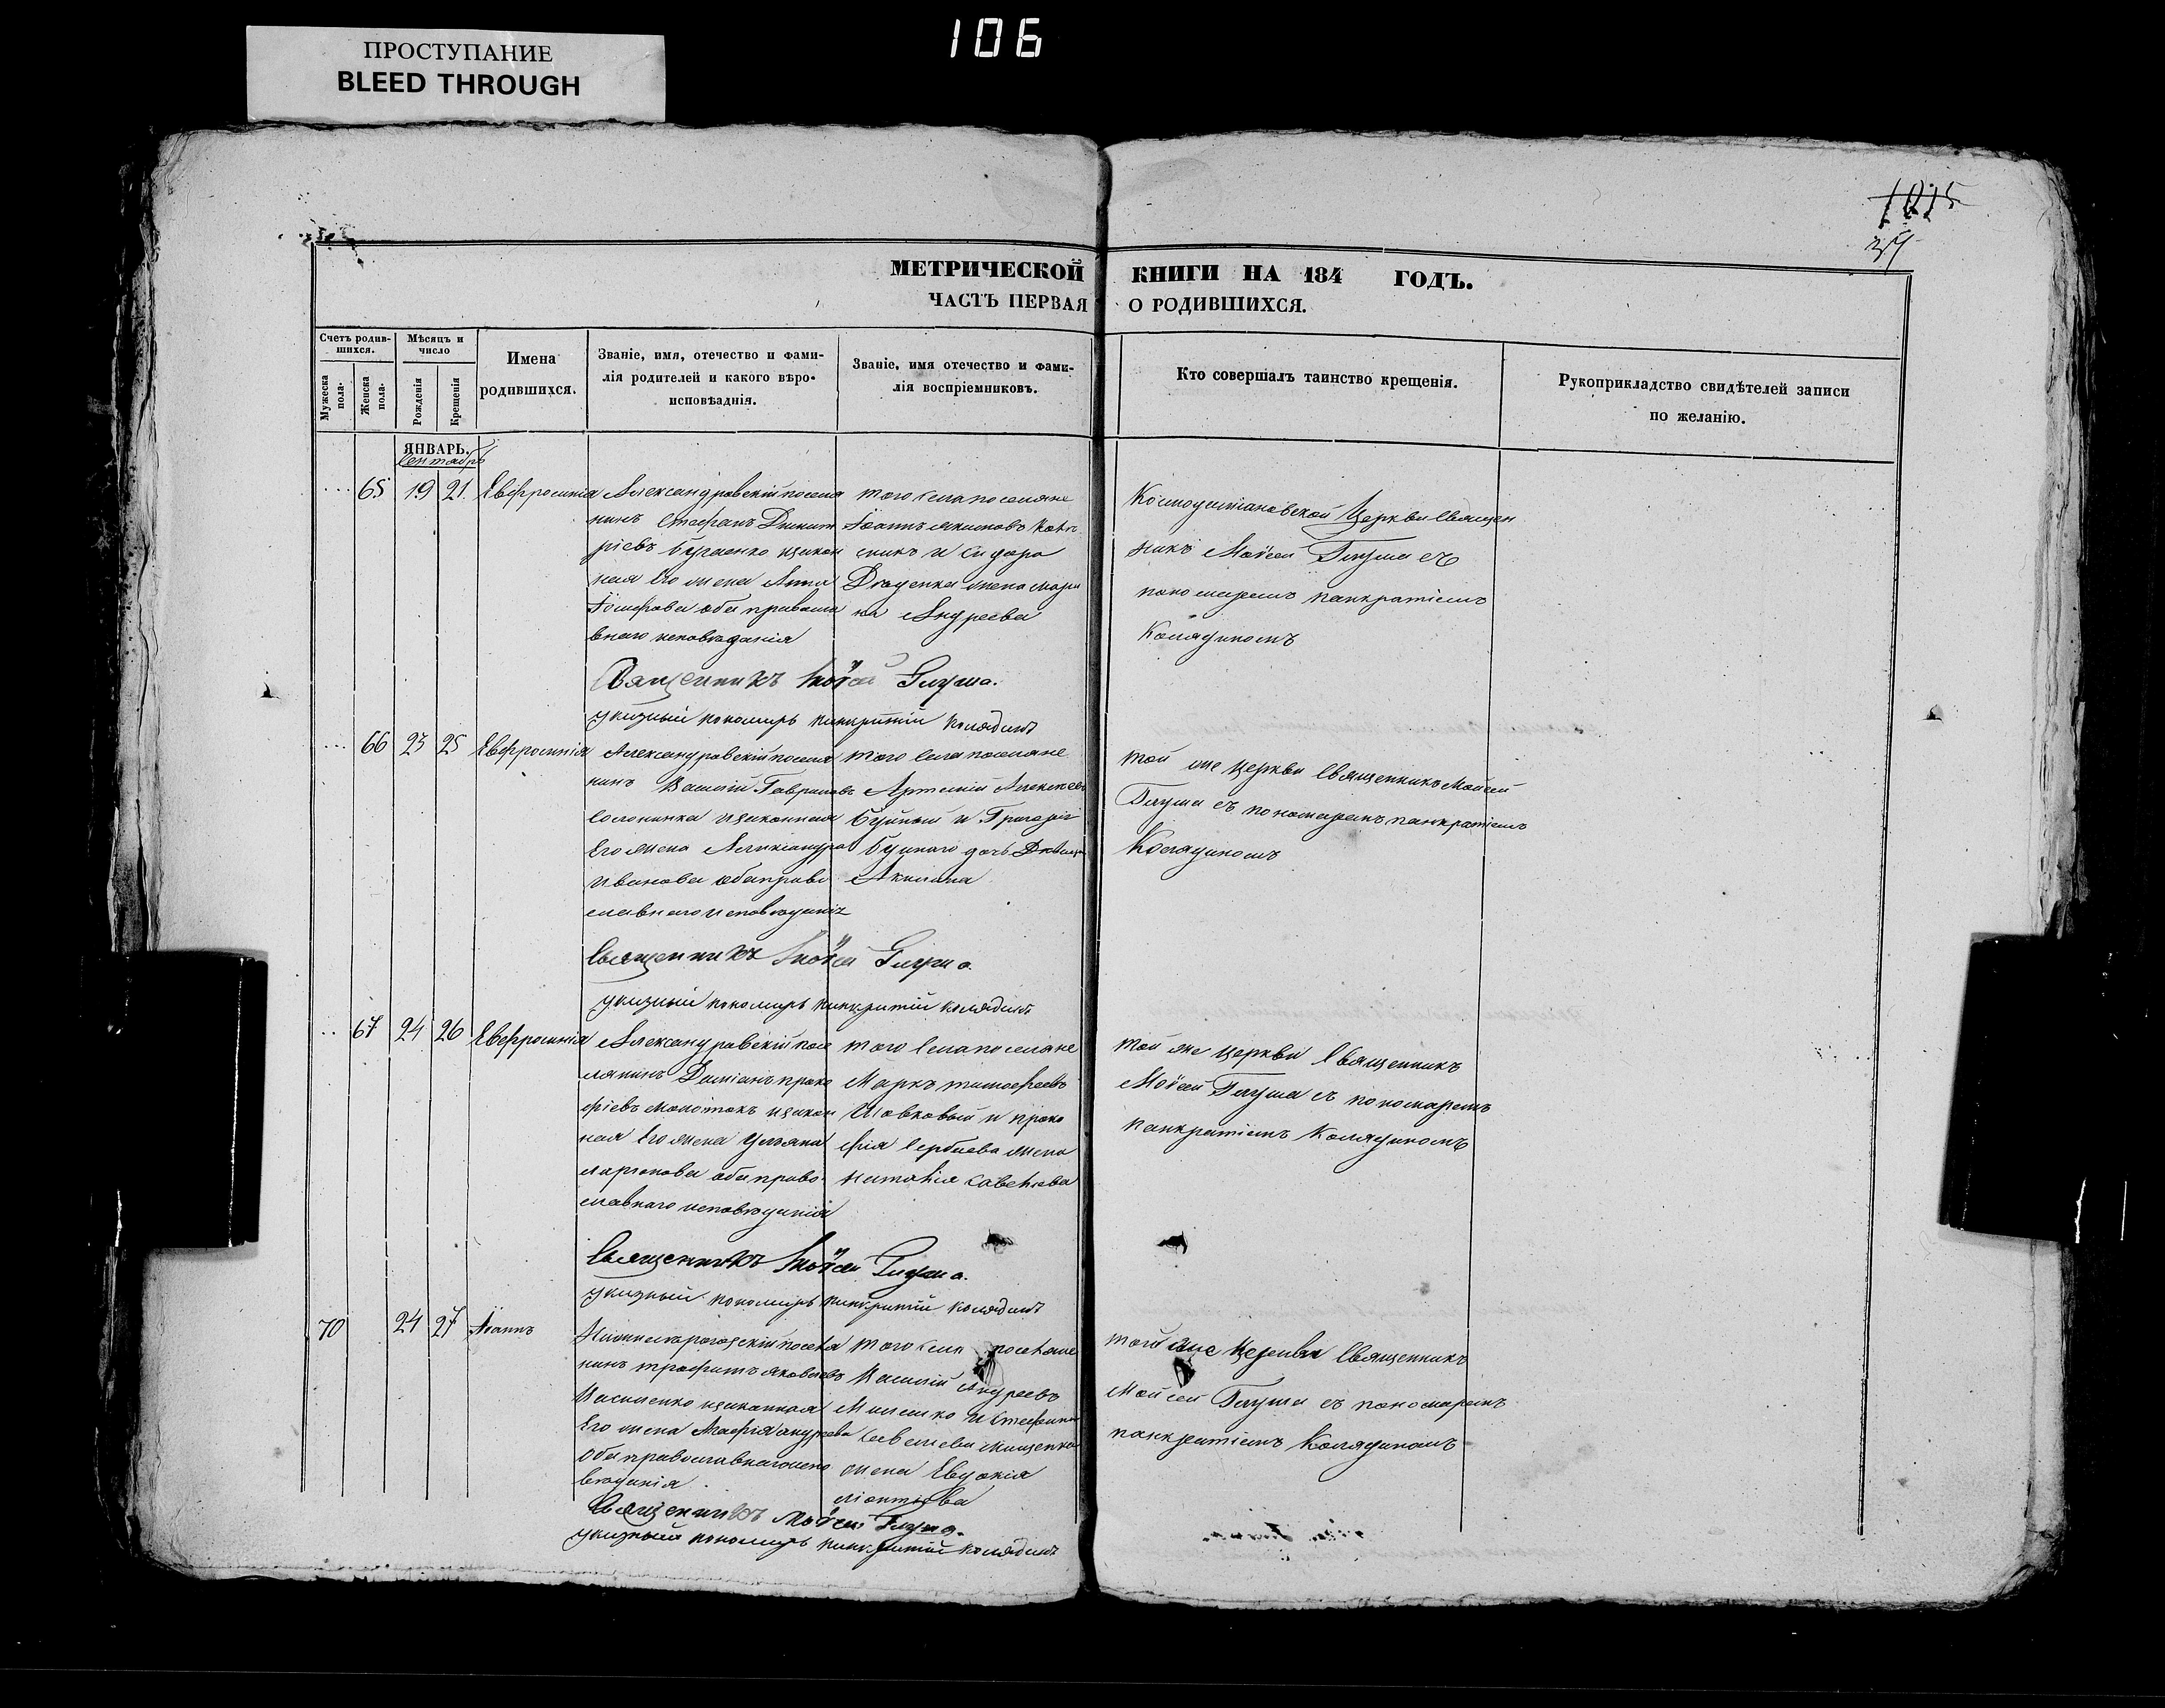 106
ПРОСТУПАНИЕ
BLEED THROUGH
1015
34
МЕТРИЧЕСКОЙ КНИГИ НА 184 ГОДЪ.
ЧАСТЬ ПЕРВАЯ О РОДИВШИХСЯ.
Счетъ родив-
шихся.
Мужеска
пола.
Женска
пола.
Мѣсяцъ и
число
Рожденія
Крещенія
Имена
родившихся.
Званіе, имя, отечество и фами-
лія родителей и какого вѣро-
исповѣданія.
Званіе, имя отечество и фами-
лія воспріемниковъ.
Кто совершалъ таинство крещенія.
Рукоприкладство свидѣтелей записи
по желанію.
ЯНВАРЬ.
Сентябрь
65 19 21 Евфросинія
Александровскій поселя
нинъ Стефанъ Димит
ріевъ Бугаенко изакон
ная Его жена Анна
Іосифова оба правосла
внаго исповѣданія
того села поселяне
Іоаннъ Акимовъ
и Сидора
жена Мари
на Андреева
Космодаміановской Церкви Священ
никъ Моѵсей Глузма съ
пономаремъ Панкратіемъ
Колядиномъ
Священникъ Моѵсей Глузма.
указный пономарь Панкратій Колядинъ
66 23 25 Евфросинія
Александровскій поселя
нинъ Василій Гавриловъ
Солонинка изаконная
Его жена Александра
Иванова оба право
славнаго исповѣданія
того села поселяне
Артемій Алексеевъ
Буцкый и Григорія
Буцкаго дочь Дѣвица
Акилина
той же Церкви Священникъ Мойсей
Глузма съ пономаремъ Панкратіемъ
Колядиномъ
Священникъ Моѵсей Глузма.
указный пономарь Панкратій Колядинъ
67 24 26 Евфросинія
Александровскій посе
лянинъ Даміанъ Проко
фіевъ Молотокъ изакон
ная Его жена Ульяна
Ларіонова оба право
славнаго исповѣданія
того села поселяне
Маркъ Тимофеевъ
Шовковый и Проко
фія Сербиева жена
Наталія Савельева
той же Церкви Священникъ
Моѵсей Глузма съ пономаремъ
Панкратіемъ Колядиномъ
Священникъ Моѵсей Глузма.
указный пономарь Панкратій Колядинъ
70 24 27 Іоаннъ
поселя
нинъ Трофимъ Яковлевъ
Василенко изаконная
Его жена Агафія Андреева
Оба православнаго испо
вѣданія
того села поселяне
Василій Андреевъ
и Стефана
Савельева Мищенка
жена Евдокія
Леонтьева
той же Церкви Священникъ
Мойсей Глузма съ пономаремъ
Панкратіемъ Колядиномъ
Священникъ Моѵсей Глузма.
указный пономарь Панкратій Колядинъ